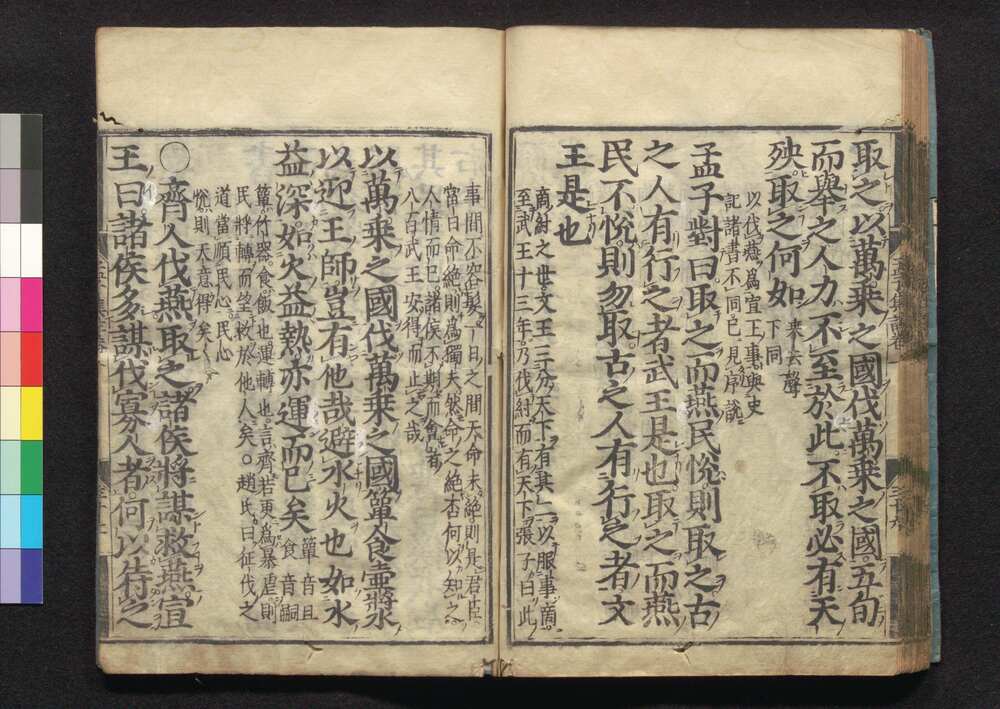 取之以萬乘之國伐萬乘之國五旬
而舉之人力不至於此不取必有天
殃取之何如
乘去聲
下同
以伐燕爲宣王事與史
記諸書不同已見序說
孟子對曰取之而燕民悅則取之古
之人有行之者武王是也取之而燕
民不悅則勿取古之人有行之者文
王是也
商紂之世文王三分天下有其二以服事商
至武王十三年乃伐紂而有天下張子曰此
事間不容髮一日之間天命未絕則是君臣
當日命絕則爲獨夫然命之絕否何以知之
人情而已諸侯不期而會者
八百武王安得而止之哉
以萬乘之國伐萬乘之國簞食壺漿
以迎王師豈有他哉避水火也如水
益深如火益熱亦運而已矣
簞音丹
食音嗣
簞竹器食飯也運轉也言齊若更爲暴虐則
民將轉而望救於他人矣○趙氏曰征伐之
道當順民心民心
悅則天意得矣
○齊人伐燕取之諸侯將謀救燕宣
王曰諸侯多謀伐寡人者何以待之